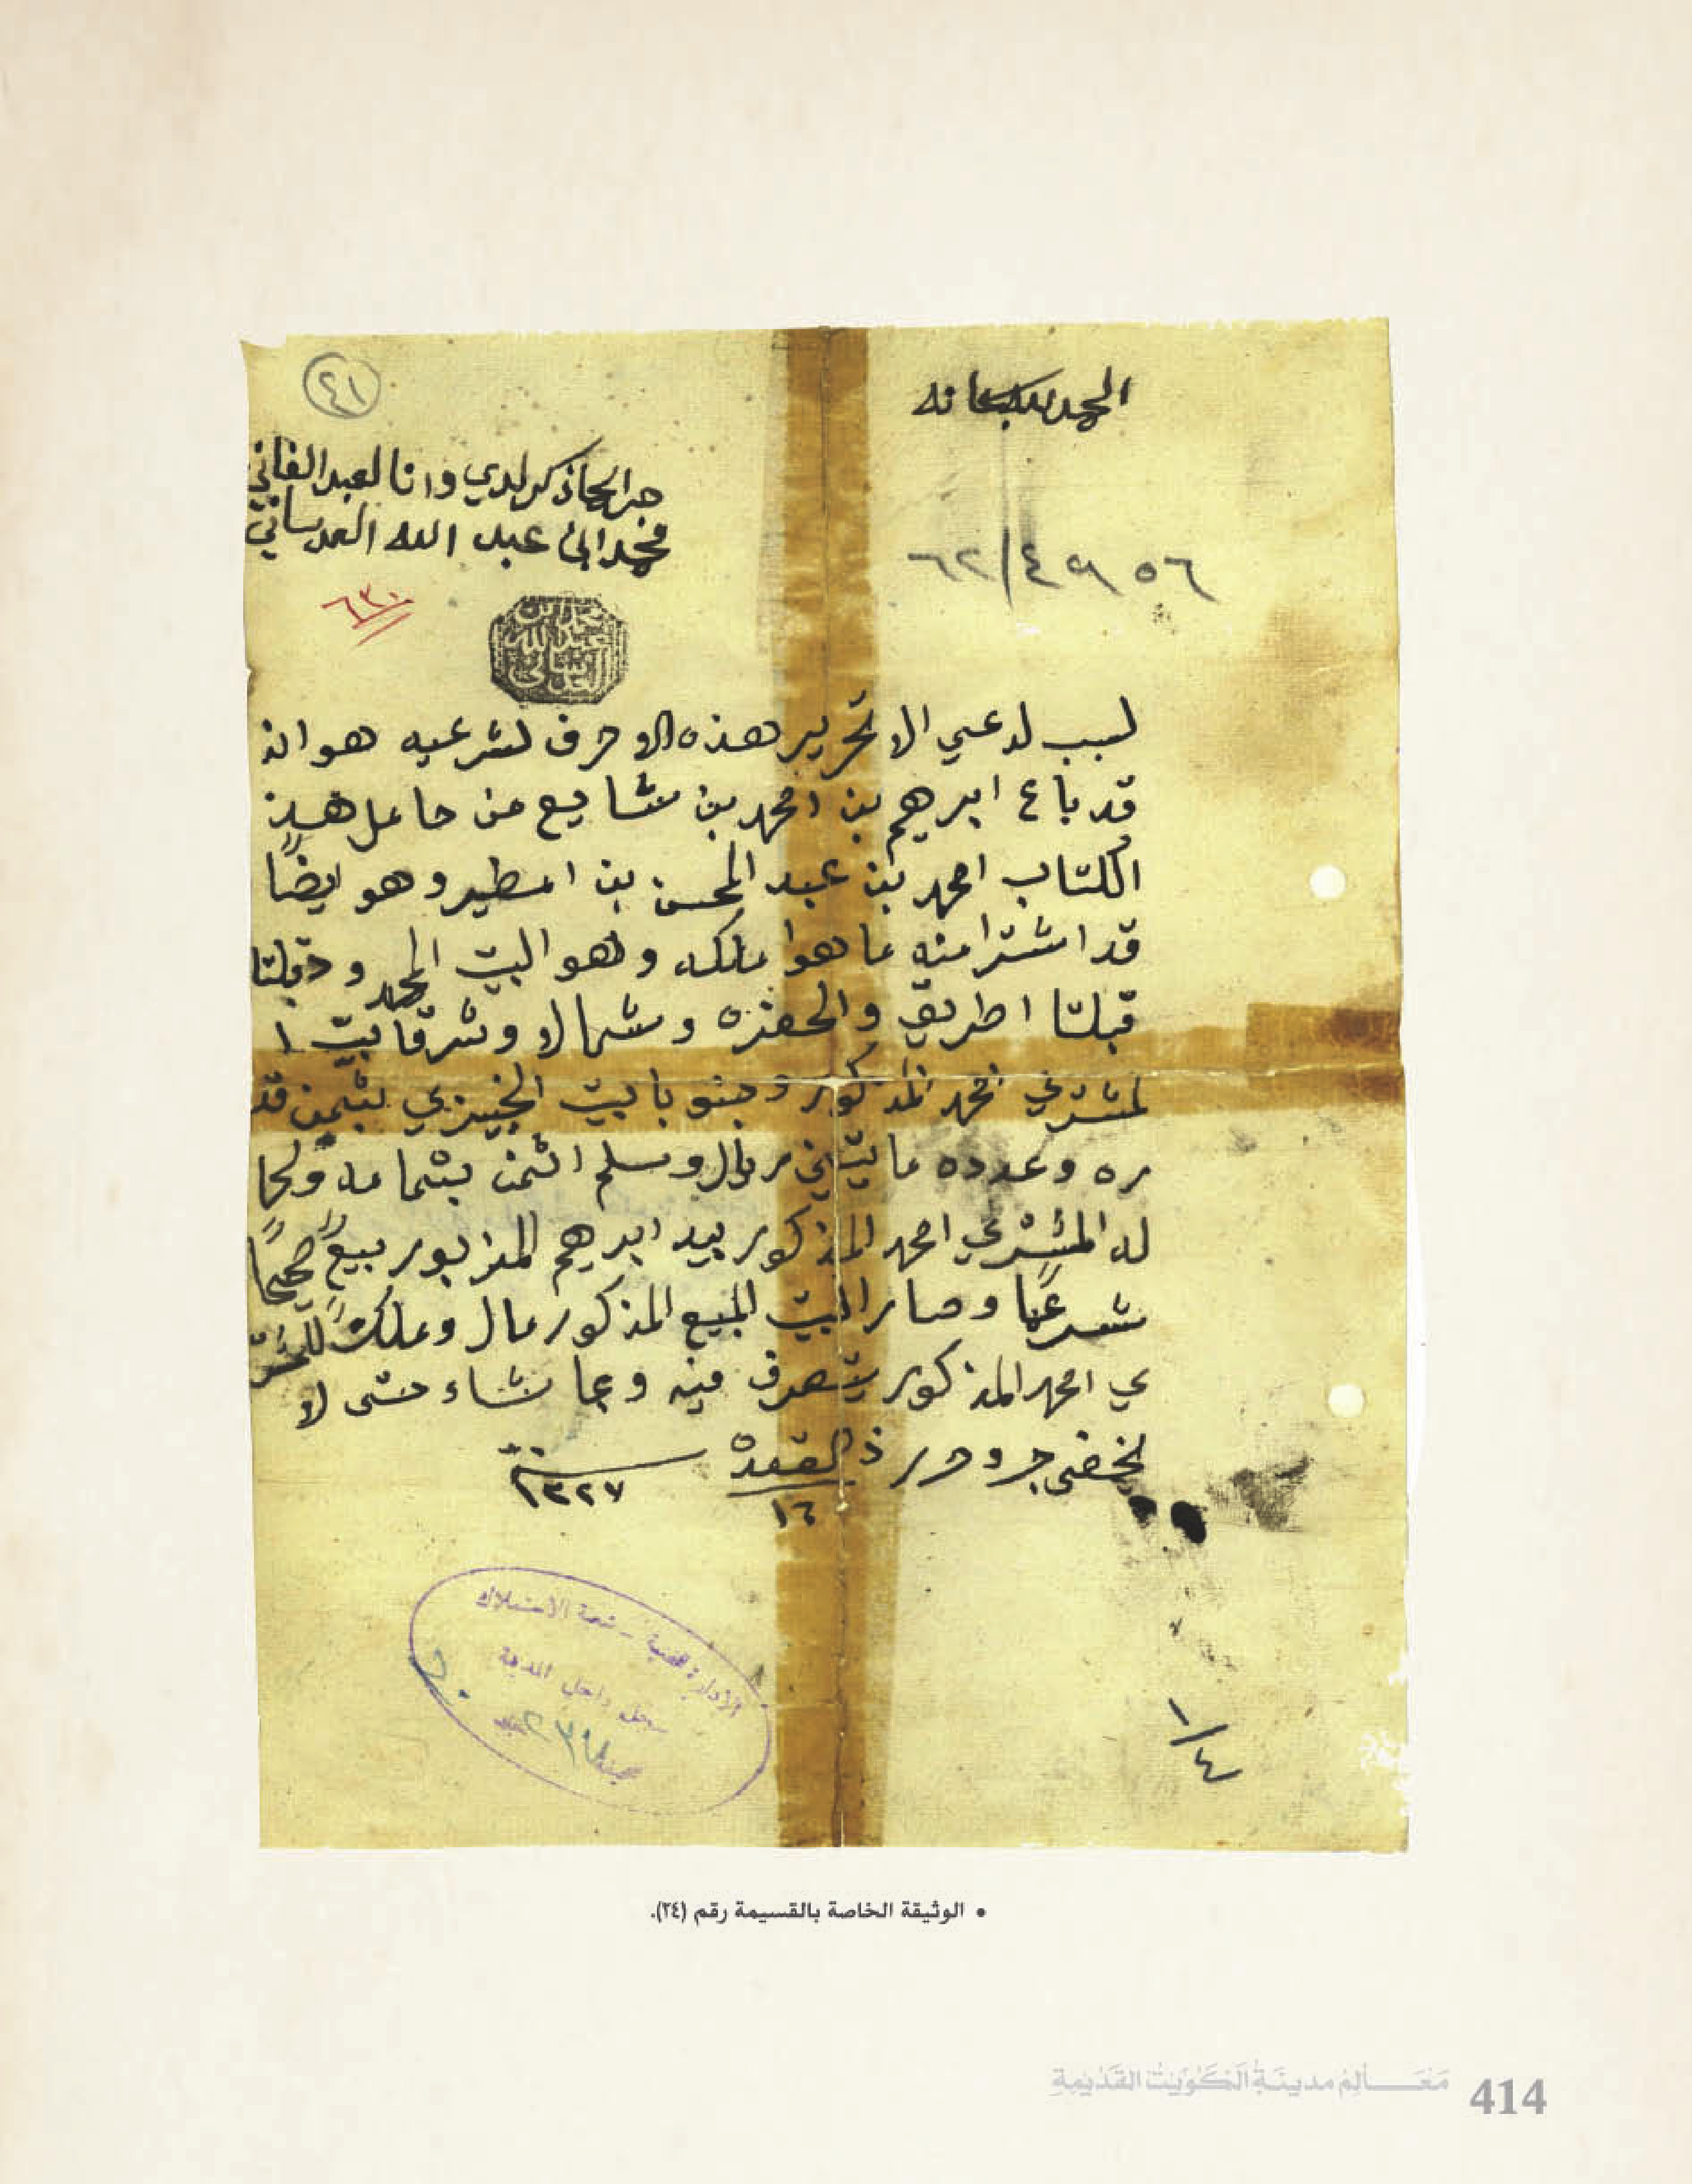 الحمد لله سبحانه
٤١
جرا لحما ذكر لدي وانا لعبد الفاني
محمد ابن عبد الله العدساني
٦٣٠
محمد بن عبد الله العدساني
لسبب لدعي الا تحرير هذه الاحرف لشرعيه هو انه
قد باع ابرهيم بن امحمد بن شايع من حامل هذ
الكتاب امحمد بن عبد المحسن بن امطير وهو ايضًا
قد اشترا منه ما هوا ملكه وهو البيت المحدود
قبلتا اطريق والحفره وشمالا وشرقا بيت ا
لمشتري محمد المذكور وجنوبا بيت الخبيزي بثمن قد
ره وعدده مايتين ريال وسلم اثمن بتمامه ولحما
له المشتري امحمد المذكور بيد ابرهيم المزبور بيعًا صحيحًا
شرعيًا وصار البيت المبيع المذكور مال وملكًا للمشتر
ي امحمد المذكور يتصرف فيه وبما شاء حتى لا
يخفى جرا وحرر ذ القعدة سنة
١٦ ١٣٢٧
الادارة - نزع الاستملاك
سجل داخل المدينة
١/٤
• الوثيقة الخاصة بالقسيمة رقم (٢٤).
مَعَالِمُ مدينَةِ الكُوَيْتِ القَدِيمَةِ 414